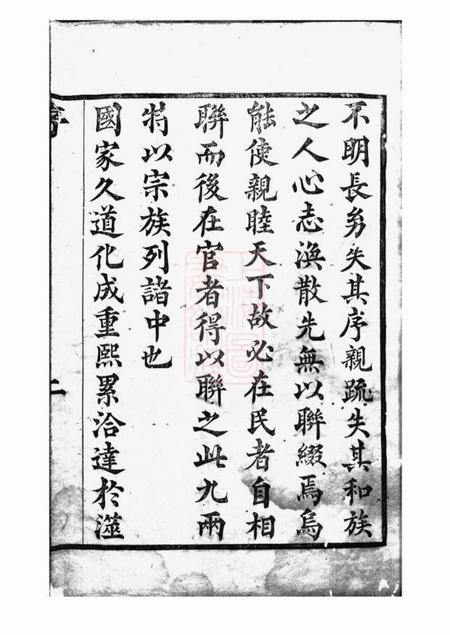 不明長㓜失其序親䟽失其和族
之人心志渙散先無以聯綴焉烏
能使親睦天下故必在民者自相
聯而後在官者得以聯之此九兩
特以宗族列諸中也
國家久道化成重熙累洽達於澨
二